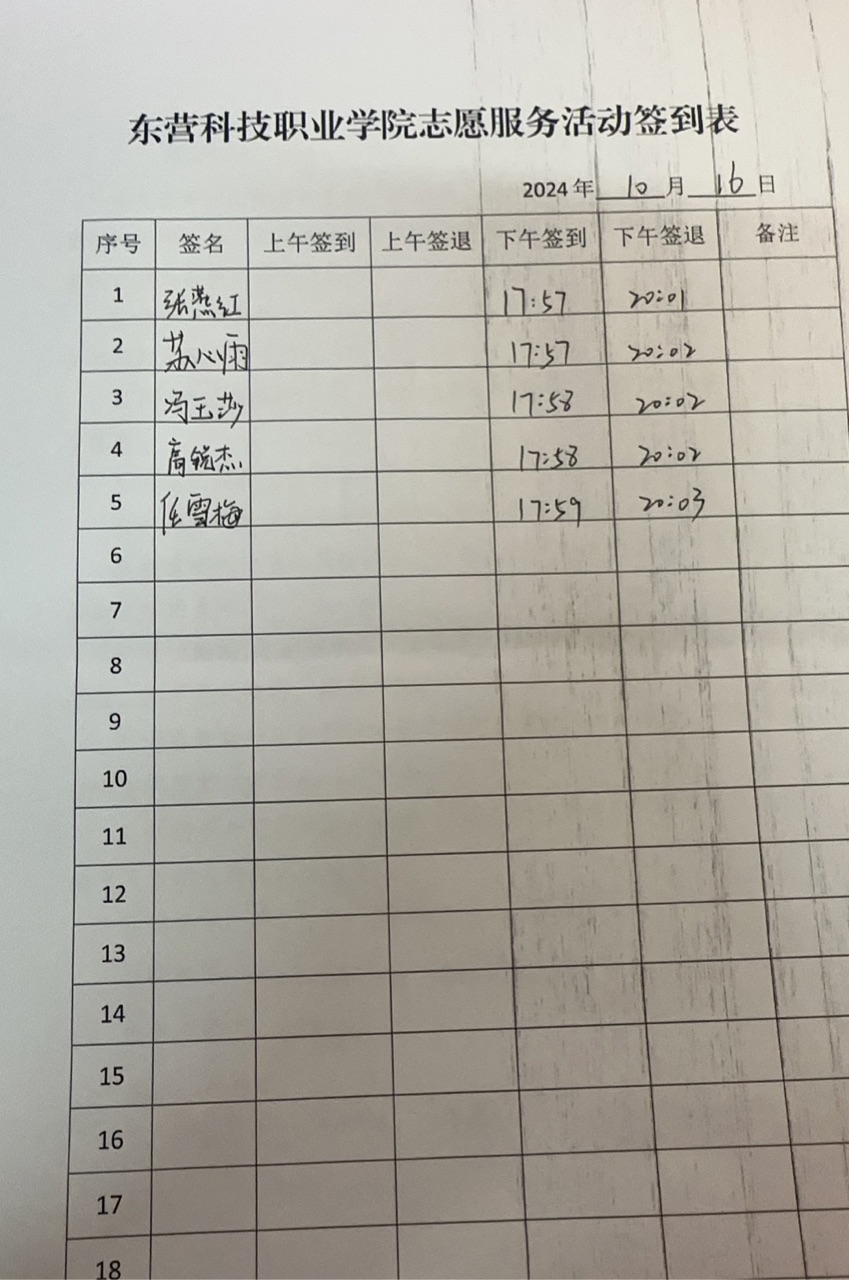 东营科技职业学院志愿服务活动签到表
2024年 10 月 16 日
序号 签名 上午签到 上午签退 下午签到 下午签退 备注
1 张燕红 17:57 20:01
2 苏心雨 17:57 20:02
3 冯玉莎 17:58 20:02
4 高锐杰 17:58 20:02
5 任雪梅 17:59 20:03
6
7
8
9
10
11
12
13
14
15
16
17
18